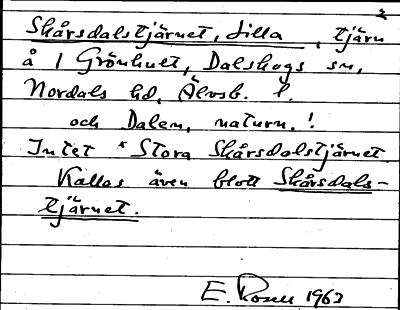 2
Skårsdalstjärnet, Lilla, tjärn
å 1 Grönhult, Dalskogs sn,
Nordals hd, Älvsb. l.
och Dalen, naturn.!
Intet * Stora Skårsdalstjärnet.
Kallas även blott Skårsdals-
tjärnet.
E. Rosell 1963